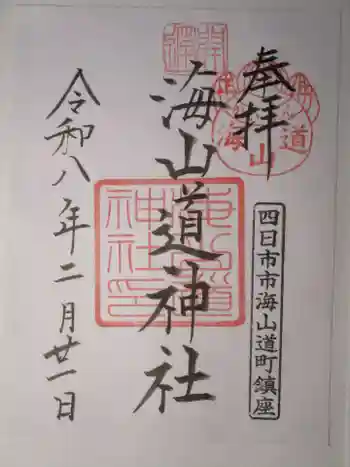 奉拝
四日市市海山道町鎮座
海山道神社
令和八年二月廿一日
開運
海山道